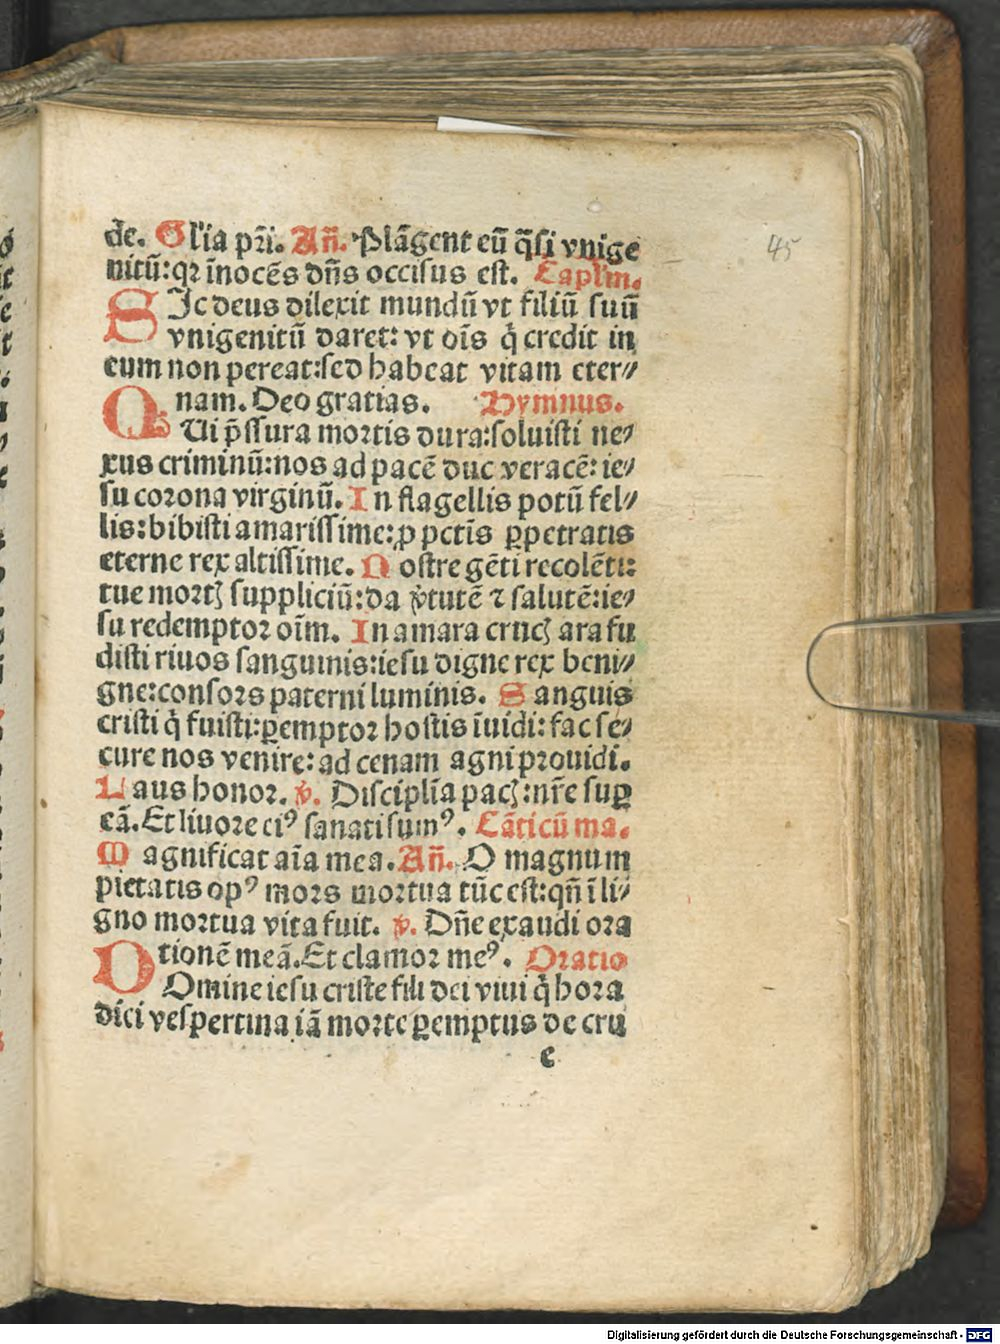 de. Gl'ia pr̄i. Añ. Plāgent eū q̄si vnige
nitū: qꝛ īnocēs dn̄s occisus est. Capl'm.
SIc deus dilexit mundū vt filiū suū
vnigenitū daret: vt oīs q̇ credit in
eum non pereat: sed habeat vitam eter⸗
nam. Deo gratias. Hymnus.
QUi p̄ssura mortis dura: soluisti ne⸗
xus criminū: nos ad pacē duc veracē: ie⸗
su corona virginū. In flagellis potū fel⸗
lis: bibisti amarissime: ꝓ pctīs ꝑpetratis
eterne rex altissime. Nostre gēti recolēti:
tue mortꝭ suppliciū: da v̓tutē ⁊ salutē: ie⸗
su redemptor oīm. In amara crucꝭ ara fu
disti riuos sanguinis: iesu digne rex beni⸗
gne: consors paterni luminis. Sanguis
cristi q̇ fuisti: ꝑemptor hostis īuidi: fac se⸗
cure nos venire: ad cenam agni prouidi.
Laus honor. ℣. Disciplīa pacꝭ: nr̄e suꝑ
eā. Et liuore eiꝰ sanati sumꝰ. Cāticū ma.
Magnificat aīa mea. Añ. O magnum
pietatis opꝰ mors mortua tūc est: qn̄ ī li⸗
gno mortua vita fuit. ℣. Dn̄e exaudi ora
tionē meā. Et clamor meꝰ. Oratio
DOmine iesu criste fili dei viui q̇ hora
diei vespertina iā morte ꝑemptus de cru
e
45
Digitalisierung gefördert durch die Deutsche Forschungsgemeinschaft - DFG